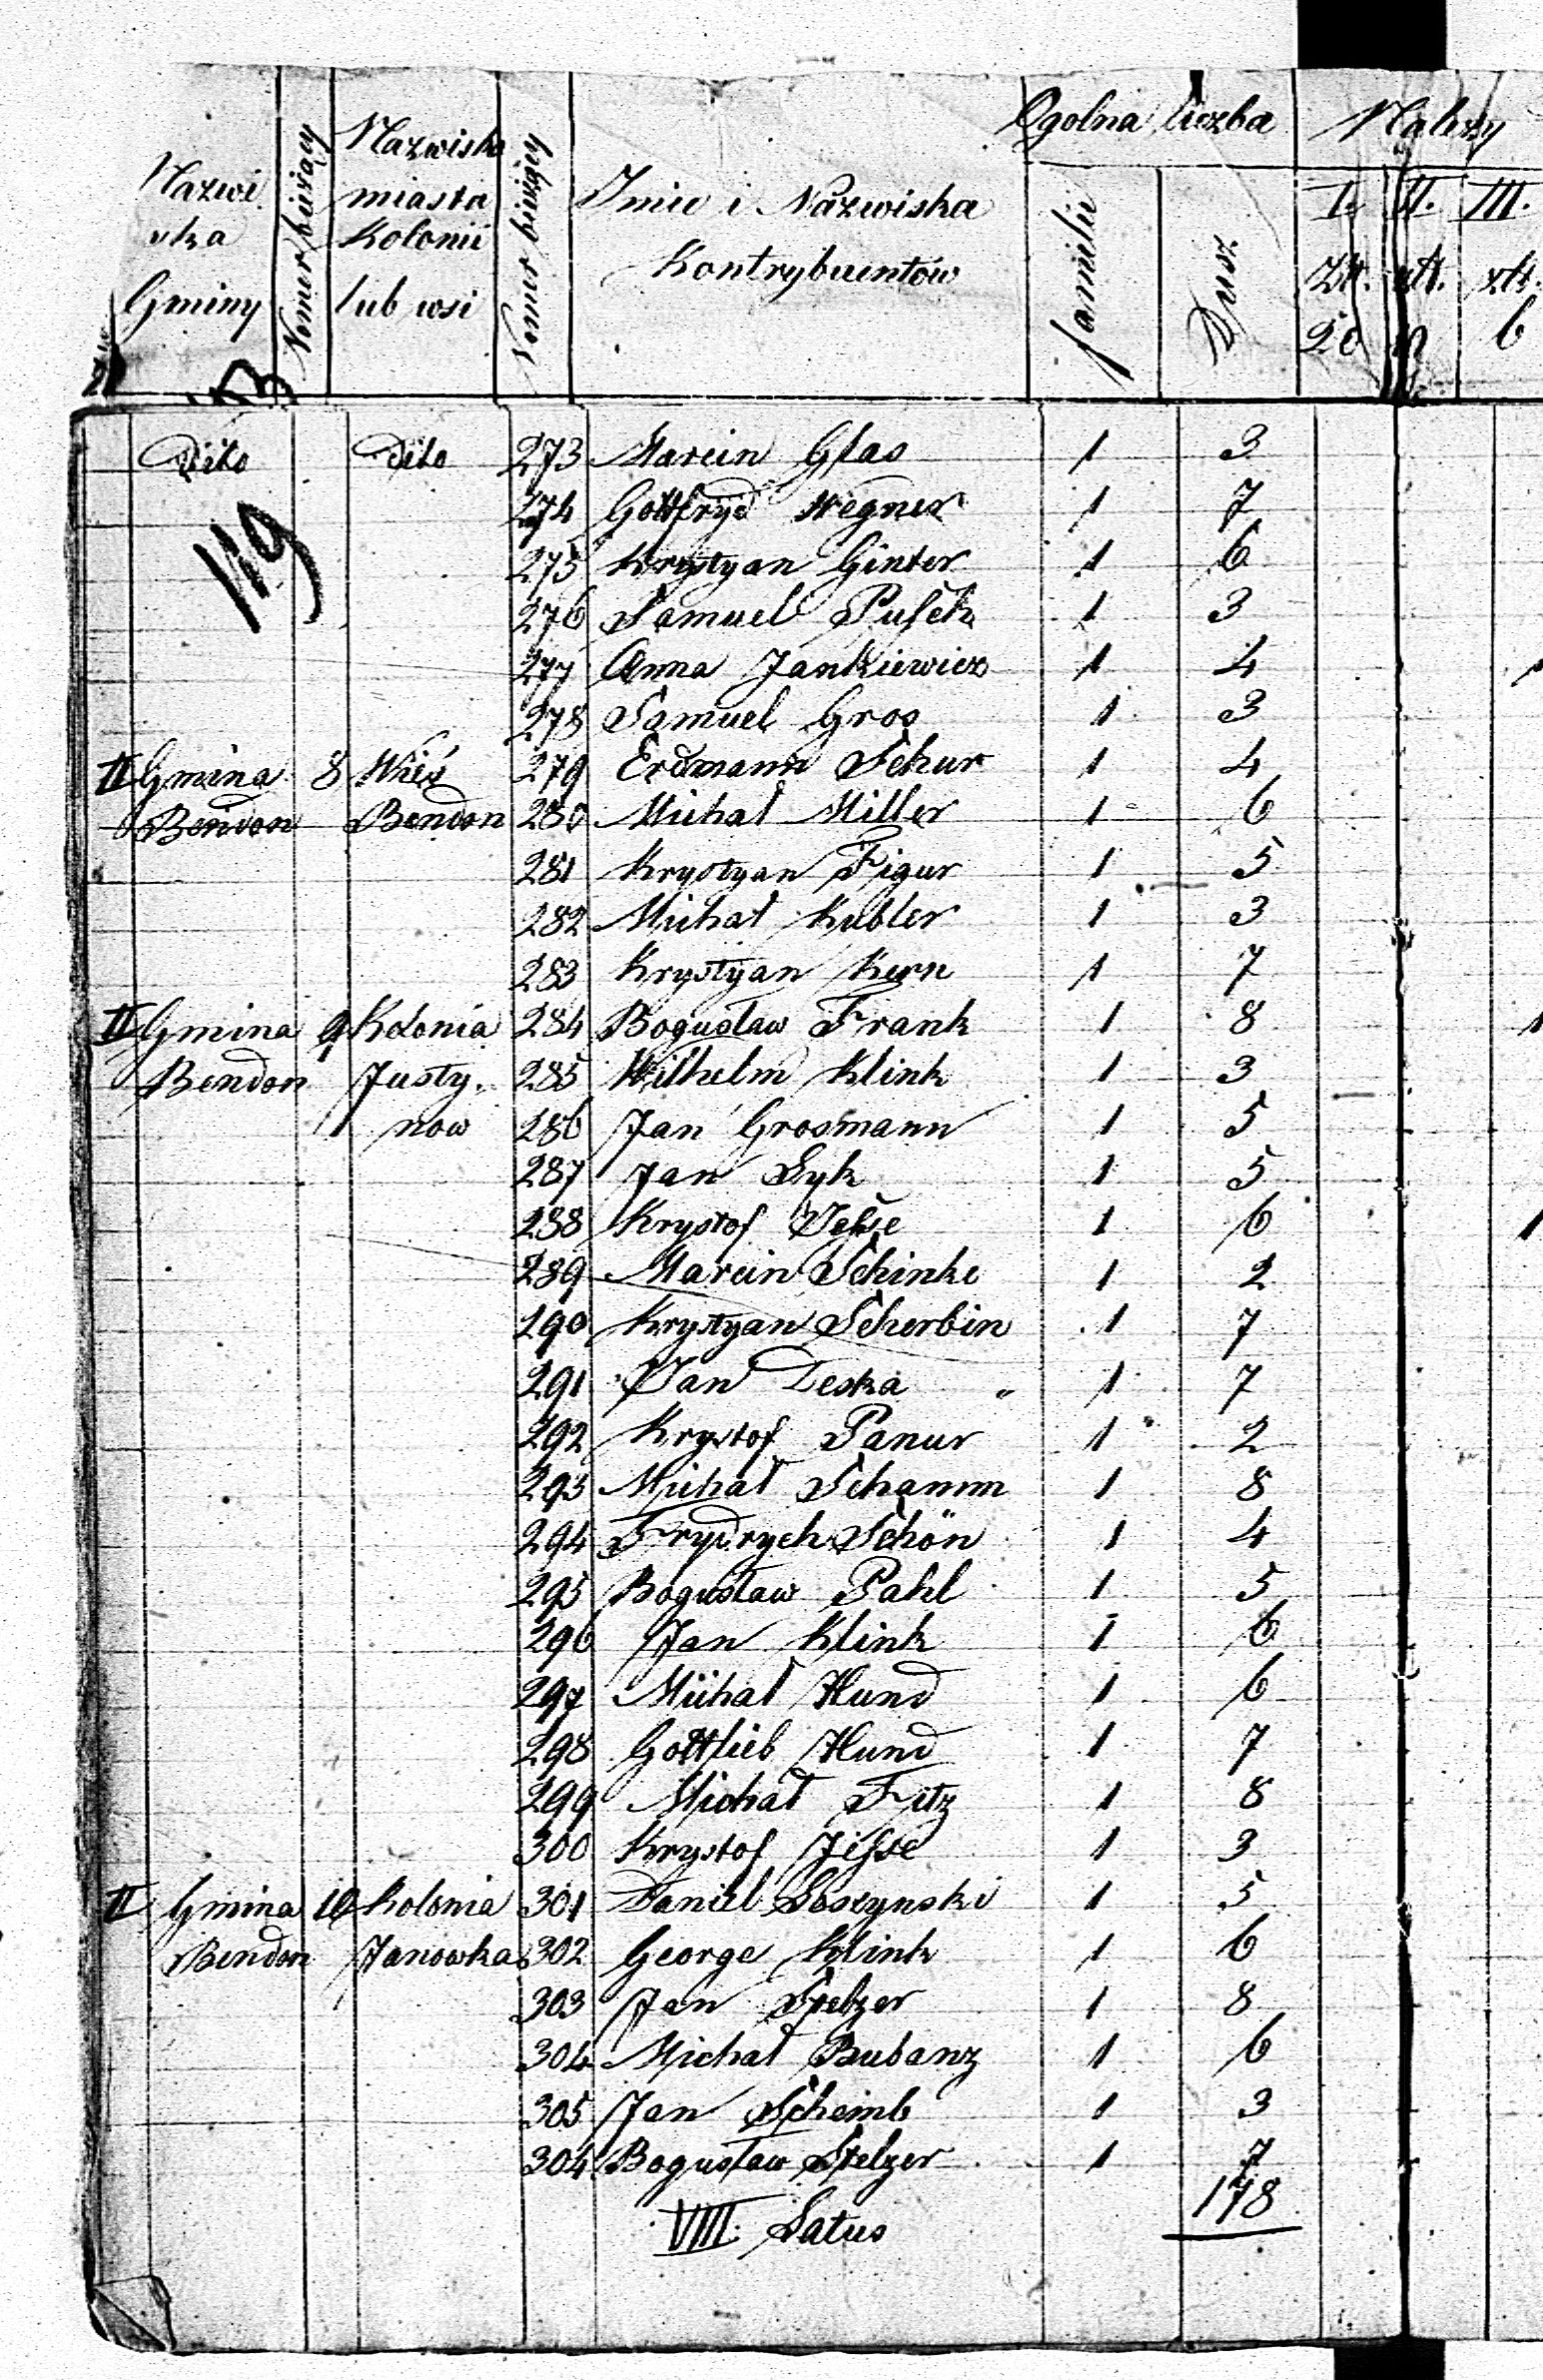 Nazwiska Gminy | Nomer bieżący | Nazwiska miasta Kolonii lub wsi | Nomer bieżący | Imie i Nazwiska Kontrybuentów | Ogolna liczba | Należy
familii | Dusz | I. | II. | III.
Złt. | złt. | złt.
20 | | 6
Dito Dito 273 Marcin Glas 1 3
119
274 Gottfryd Wegner 1 7
275 Krystyan Ginter 1 6
276 Samuel Pufch 1 3
277 Anna Jankiewicz 1 4 1
278 Samuel Gros 1 3
II Gmina 8 Wieś 279 Erdmann Schur 1 4
Bendon Bendon 280 Michał Miller 1 6
281 Krystyan Figur 1 5
282 Michał Kubler 1 3
283 Krystyan Kern 1 7
II Gmina 9 Kolonia 284 Bogusław Frank 1 8 1
Bendon Justy- 285 Wilhelm Klink 1 3
now 286 Jan Grosmann 1 5
287 Jan Lyk 1 5
288 Krystof 1 6 1
289 Marcin Schinke 1 2
290 Krystyan Scherbin 1 7
291 Jan Deska 1 7
292 Krystof Panur 1 2
293 Michał Schamm 1 8
294 Frydrych Schön 1 4
295 Bogusław Pahl 1 5
296 Jan Klink 1 6
297 Michał Hund 1 6
298 Gottlieb Hund 1 7
299 Michał Fitz 1 8
300 Krystof Jesse 1 3
II Gmina 10 Kolonia 301 Daniel Loszynski 1 5
Bendon Janowka 302 George Klink 1 6
303 Jan Stelzer 1 8
304 Michał Bubanz 1 6
305 Jan Scheimb 1 3
304 Bogusław Stelzer 1 7
VIII. Latus 178